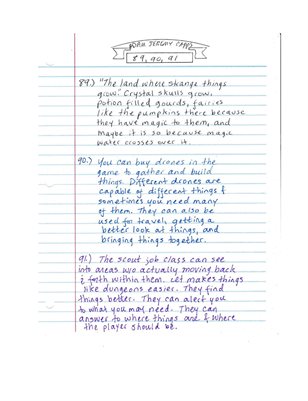 JOHN JEREMY CAPPS
89, 90, 91
89.) "The land where strange things
grow." Crystal skulls grow,
potion filled gourds, fairies
like the pumpkins there because
they have magic to them, and
maybe it is so because magic
water crosses over it.
90.) You can buy drones in the
game to gather and build
things. Different drones are
capable of different things &
sometimes you need many
of them. They can also be
used for travel, getting a
better look at things, and
bringing things together.
91.) The scout job class can see
into areas w/o actually moving back
& forth within them. Let makes things
like dungeons easier. They find
things better. They can alert you
to what you may need. They can
answer to where things are & where
the player should be.